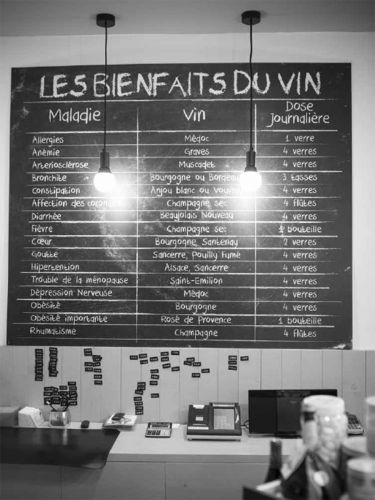 LES BIENFAITS DU VIN
Maladie Vin Dose journalière
Allergies Médoc 1 verre
Anémie Graves 4 verres
Artériosclérose Muscadet 4 verres
Bronchite Bourgogne ou Bordeaux 3 tasses
Constipation Anjou blanc ou Vouvray 4 verres
Affection des coronaires Champagne sec 4 flûtes
Diarrhée Beaujolais Nouveau 4 verres
Fièvre Champagne sec bouteille
Cœur Bourgogne, Santenay 2 verres
Goutte Sancerre, Pouilly fumé 4 verres
Hipertention Alsace, Sancerre 4 verres
Trouble de la ménopause Saint-Emilion 4 verres
Dépression Nerveuse Médoc 4 verres
Obésité Bourgogne 4 verres
Obésité importante Rosé de Provence 1 bouteille
Rhumatisme Champagne 4 flûtes